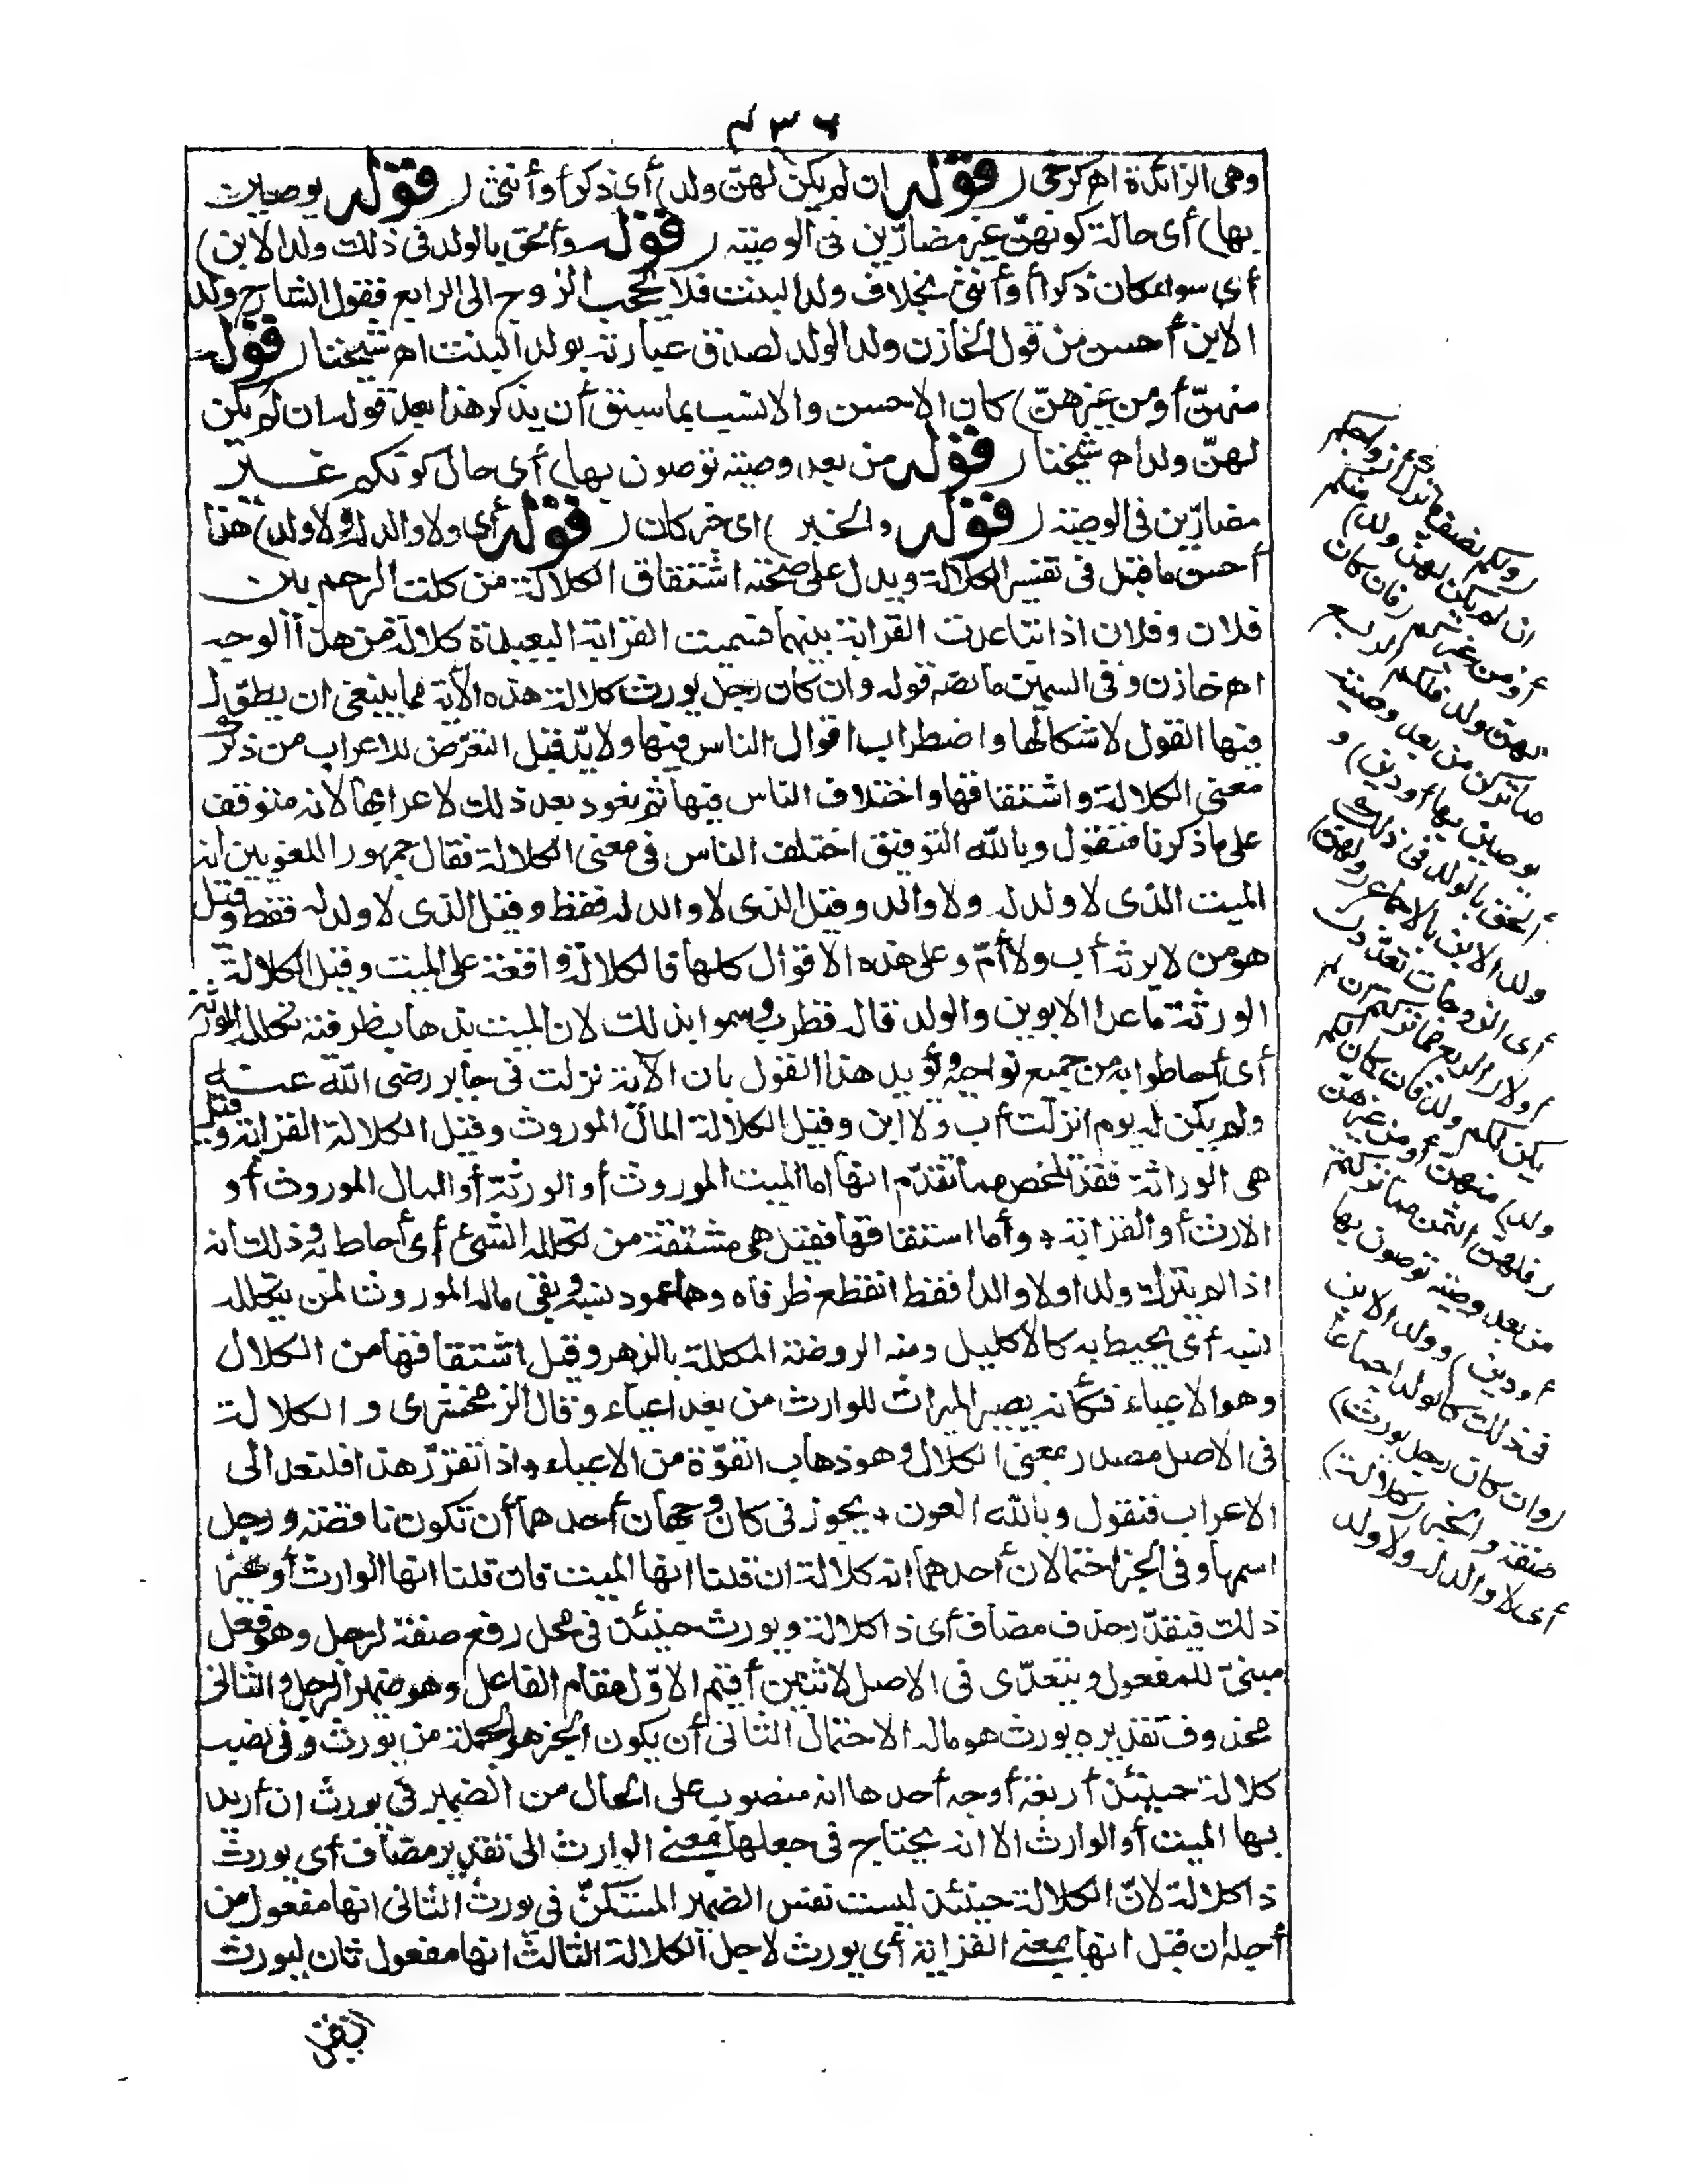 ٤٣٦
وهى الزائدة اه كرخى (قوله ان لم يكن لهنّ ولد) أى ذكر أو أنثى (قوله يوصين
بها) أى حالة كونهنّ غير مضارّين فى الوصية (قوله وألحق بالولد فى ذلك ولد الابن)
أى سواء كان ذكرا أو أنثى بخلاف ولد البنت فلا يحجب الزوج الى الرابع فقول الشارح ولد
الابن أحسن من قول الخازن ولد الولد لصدق عبارته بولد البنت اه شيخنا (قوله
منهنّ أو من غيرهنّ) كان الاحسن والانسب بما سبق أن يذكر هذا بعد قوله ان لم يكن
لهنّ ولد اه شيخنا (قوله من بعد وصية توصون بها) أى حال كونكم غير
مضارّين فى الوصية (قوله والخبر) اى خبر كان (قوله أى ولا والد له ولا ولد) هذا
أحسن ما قيل فى تفسير الكلالة ويدل على صحته اشتقاق الكلالة من كلت الرحم بين
فلان وفلان اذا تباعدت القرابة بينهما فسميت القرابة البعيدة كلالة من هذا الوجه
اه خازن وفى السمين ما نصه قوله وان كان رجل يورث كلالة هذه الآية مما ينبغى ان يطوّل
فيها القول لاشكالها واضطراب اقوال الناس فيها ولا بدّ قبل التعرّض للاعراب من ذكر
معنى الكلالة واشتقاقها واختلاف الناس فيها ثم نعود بعد ذلك لاعرابها لانه متوقف
على ما ذكرنا فنقول وبالله التوفيق اختلف الناس فى معنى الكلالة فقال جمهور اللغويين انه
الميت الذى لا ولد له ولا والد وقيل الذى لا والد له فقط وقيل الذى لا ولد له فقط وقيل
هو من لا يرثه أب ولا أمّ وعلى هذه الاقوال كلها فالكلالة واقعة على الميت وقيل الكلالة
الورثة ما عدا الابوين والولد قاله قطرب وسموا بذلك لان الميت بذهاب طرفيه تكلله الورثة
أى أحاطوا به من جميع نواحيه ويؤيد هذا القول بان الآية نزلت فى جابر رضى الله عنه
ولم يكن له يوم انزلت أب ولا ابن وقيل الكلالة المال الموروث وقيل الكلالة القرابة وقيل
هى الوراثة فقد تلخص مما تقدّم انها اما الميت الموروث أو الورثة أو المال الموروث أو
الارث أو القرابة وأما اشتقاقها فقيل هى مشتقة من تكلله الشئ أى أحاط به وذلك أنه
اذا لم يترك ولدا ولا والدا فقط انقطع طرفاه وهما عمودا نسبه وبقى ماله الموروث لمن يتكلله
نسبه أى يحيط به كالاكليل ومنه الروضة المكللة بالزهر وقيل اشتقاقها من الكلال
وهو الاعياء فكأنه يصير الميراث للوارث من بعد اعياء وقال الزمخشرى والكلالة
فى الاصل مصدر بمعنى الكلال وهو ذهاب القوّة من الاعياء واذ تقرّر هذا فلنعد الى
الاعراب فنقول وبالله العون يجوز فى كان وجهان أحدهما أن تكون ناقصة ورجل
اسمها وفى الخبر احتمالان أحدهما انه كلالة ان قلنا انها الميت فان قلنا انها الوارث أو غير
ذلك فيقدّر حذف مضاف أى ذا كلالة ويورث حينئذ فى محل رفع صفة لرجل وهو فعل
مبنىّ للمفعول ويتعدّى فى الاصل لاثنين أقيم الاوّل مقام الفاعل وهو ضمير الرجل والثانى
محذوف تقديره يورث هو ماله الاحتمال الثانى أن يكون الخبر هو الجملة من يورث وفى نصب
كلالة حينئذ أربعة أوجه أحدها انه منصوب على الحال من الضمير فى يورث ان أريد
بها الميت أو الوارث الا انه يحتاج فى جعلها بمعنى الوارث الى تقدير مضاف أى يورث
ذا كلالة لانّ الكلالة حينئذ ليست نفس الضمير المستكنّ فى يورث الثانى انها مفعول من
أجله ان قيل انها بمعنى القرابة أى يورث لاجل الكلالة الثالث انها مفعول ثان ليورث
(ولكم نصف ما ترك أزواجكم
ان لم يكن لهنّ ولد) منكم
أو من غيركم (فان كان
لهنّ ولد فلكم الربع
مما تركن من بعد وصية
يوصين بها أو دين) و
ألحق بالولد فى ذلك
ولد الابن بالاجماع (ولهنّ)
أى الزوجات تعدّدن
أولا (الربع مما تركتم ان لم
يكن لكم ولد فان كان لكم
ولد) منهنّ أو من غيرهنّ
(فلهنّ الثمن مما تركتم
من بعد وصية توصون بها
أو دين) وولد الابن
فى ذلك كالولد اجماعا
(وان كان رجل يورث)
صفة والخبر (كلالة)
أى لا والد له ولا ولد